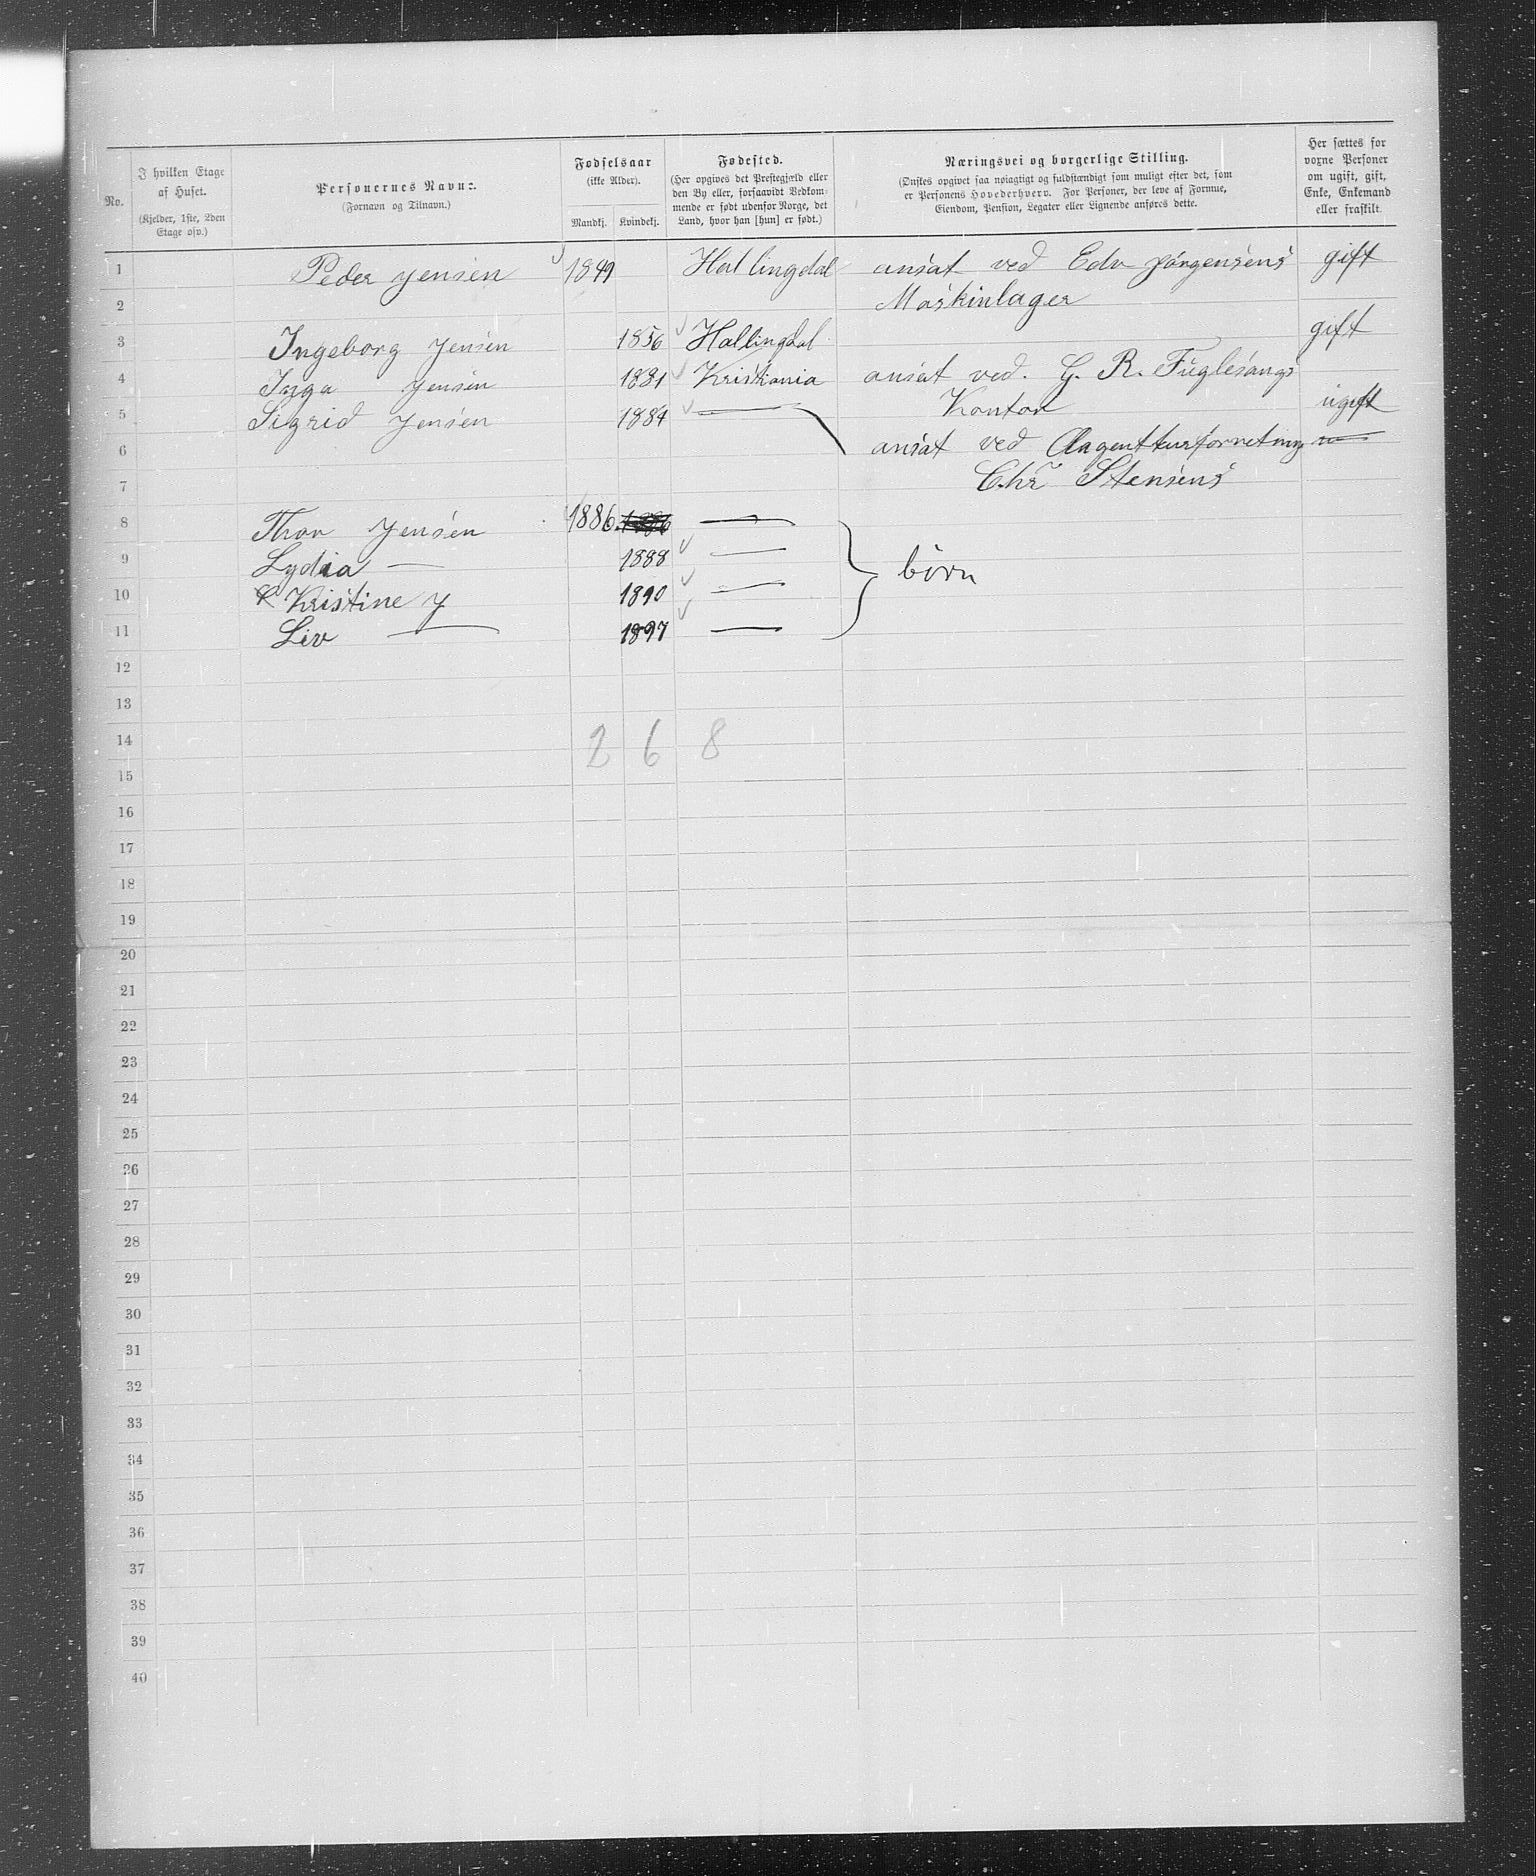 No.
I hvilken Etage af Huset. (Kjelder, 1ste, 2den Etage osv.)
Personernes Navne. (Fornavn og Tilnavn.)
Fødselsaar (ikke Alder).
Mandkj. Kvindekj.
Fødested. (Her opgives det Prestegjæld eller den By eller, forsaavidt Vedkommende er født udenfor Norge, det Land, hvor han [hun] er født.)
Næringsvei og borgerlige Stilling. (Ønskes opgivet saa nøiagtigt og fuldstændigt som muligt efter det, som er Personens Hovederhverv. For Personer, der leve af Formue, Eiendom, Pension, Legater eller Lignende anføres dette.
Her sættes for voxne Personer om ugift, gift, Enke, Enkemand eller fraskilt.
1 Peder Jensen 1849 Hallingdal ansat ved Edv Jørgensens gift
2 Maskinlager
3 Ingeborg Jensen 1856 Hallingdal gift
4 Inga Jensen 1881 Kristiania ansat ved. G. R. Fuglesangs
5 Sigrid Jensen 1884 — Kontor ugift
6 ansat ved Aagentturforretning —
7 Chr Stensens
8 Thor Jensen 1886 1886 —
9 Lydia — 1888 — børn
10 Kristine J 1890 —
11 Liv — 1897 —
12
13
14 2 6 8
15
16
17
18
19
20
21
22
23
24
25
26
27
28
29
30
31
32
33
34
35
36
37
38
39
40